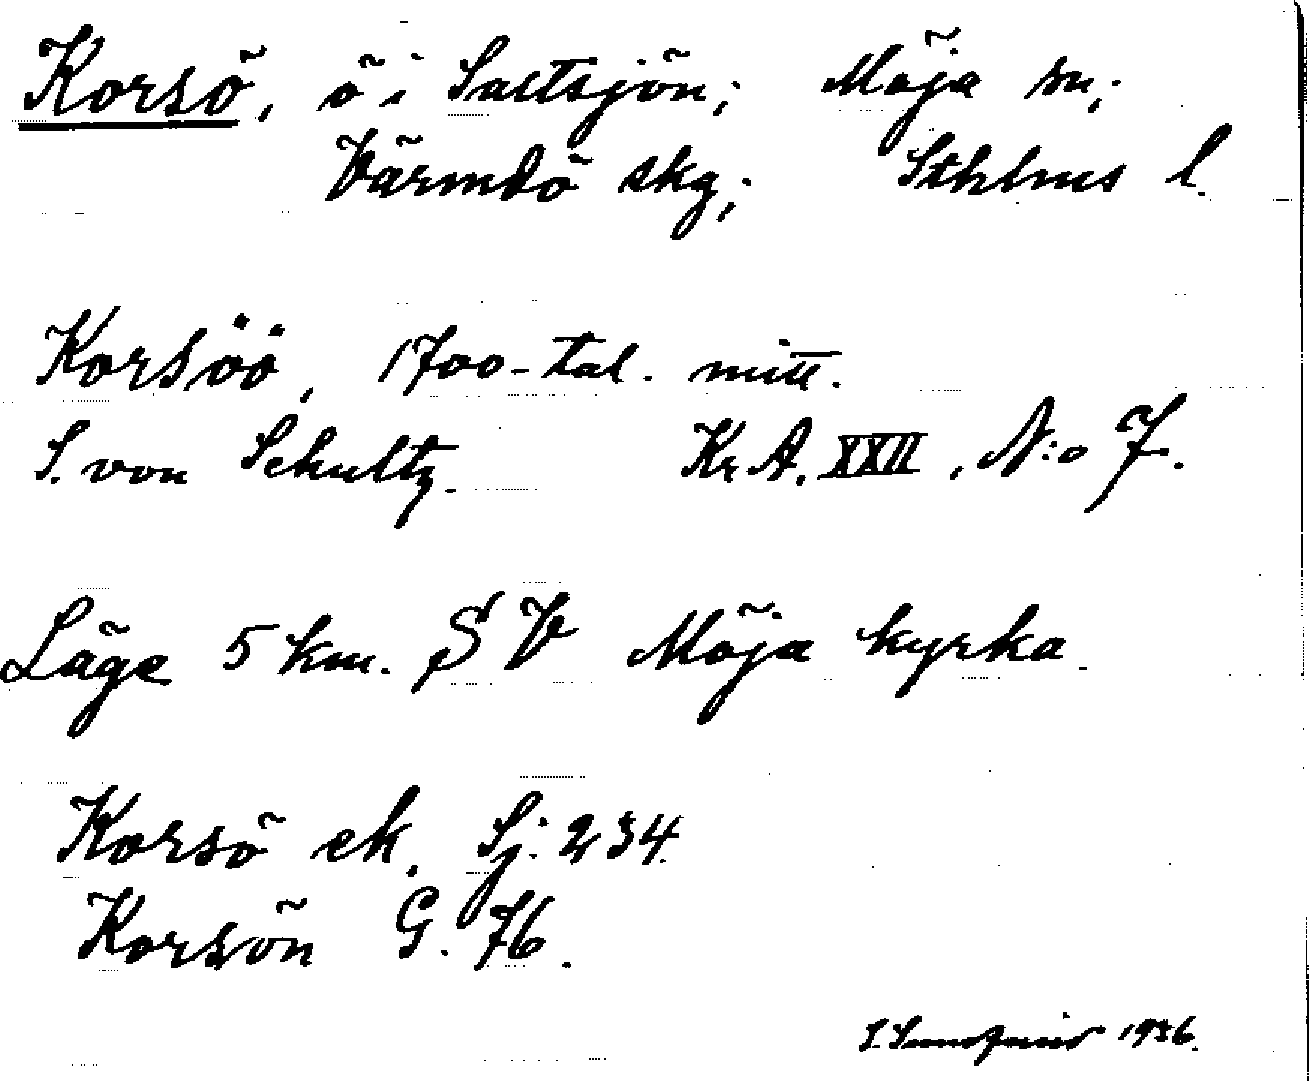 Korsö, ö i Saltsjön; Möja sn;
Värmdö skg; Sthlms l.
Korsöö, 1700-tal. mitt.
S. von Schultz. Kr A. XXII, N:o 7.
Läge 5 km. SV Möja kyrka.
Korsö ek. Sj. 234.
Korsön G. 76.
1936.